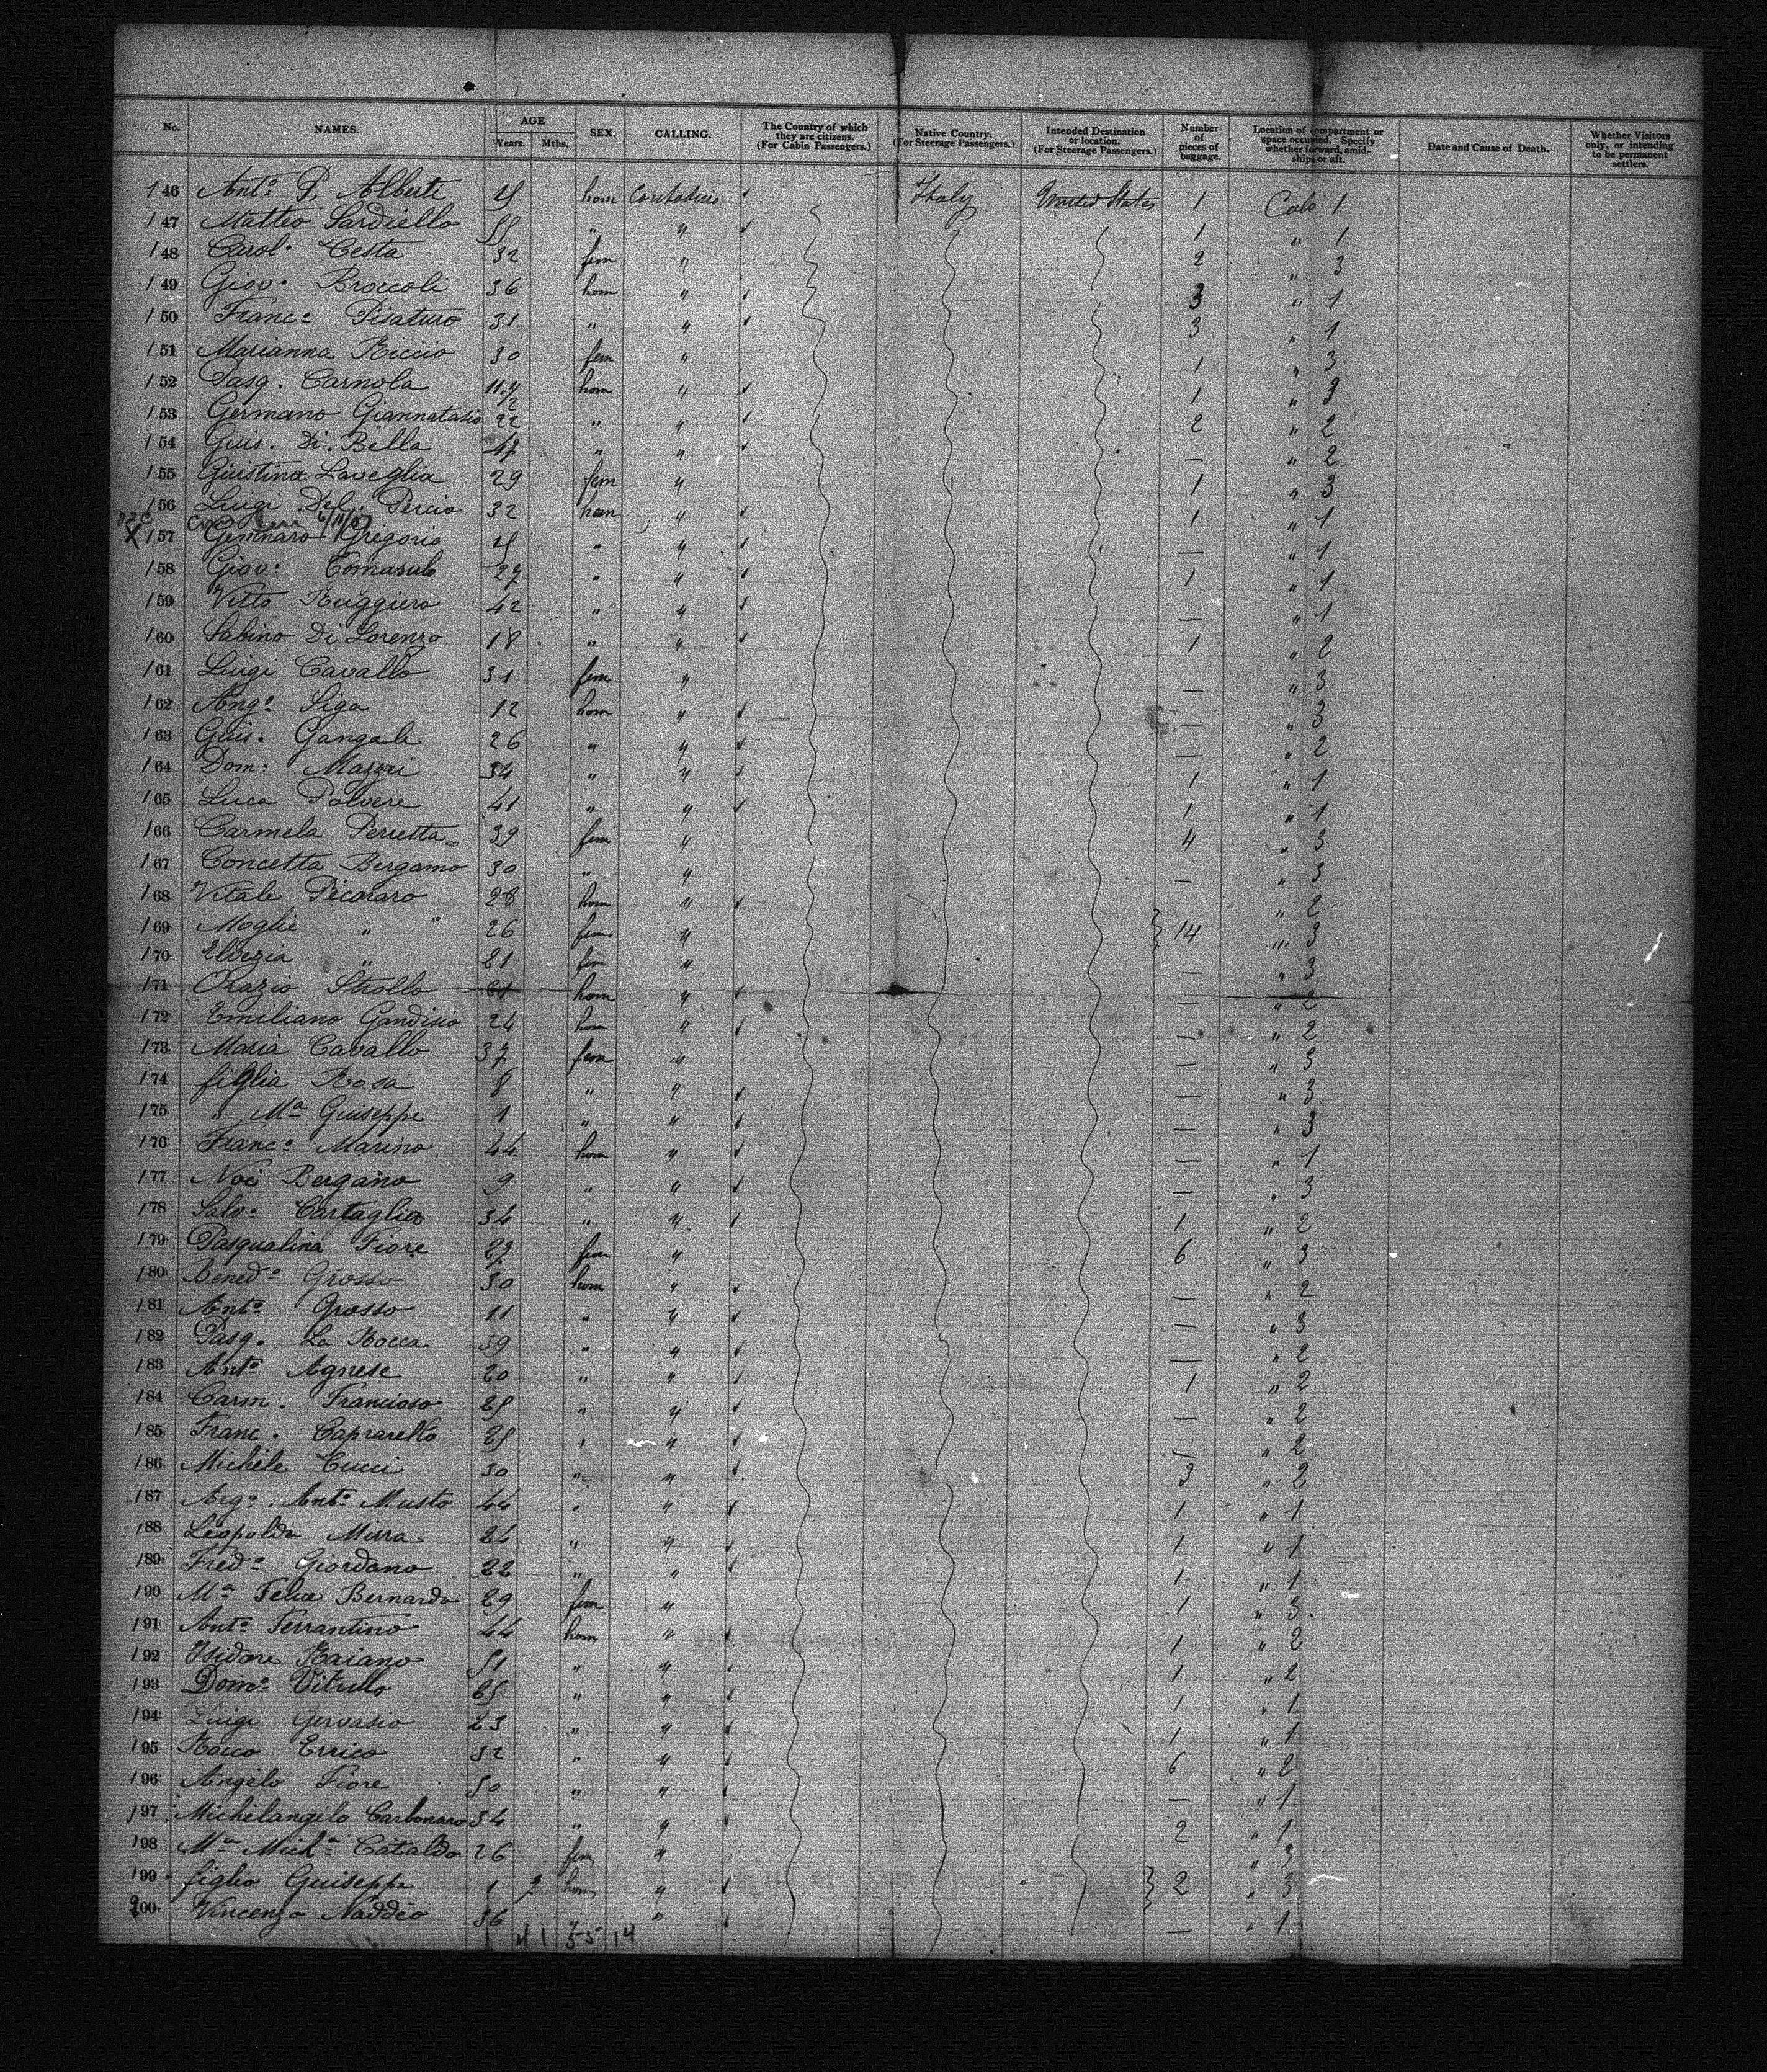 No. NAMES. AGE Years. Mths. SEX. CALLING. The Country of which they are citizens. (For Cabin Passengers.) Native Country. (For Steerage Passengers.) Intended Destination or location. (For Steerage Passengers.) Number of pieces of baggage. Location of compartment or space occupied. Specify whether forward, amidships or aft. Date and Cause of Death. Whether Visitors only, or intending to be permanent settlers.
146 Antº P. Alberti hom Contadino Italy United States 1 1
147 Matteo Sardiello 55 " " 1 " 1
148 Carolª Testa 32 fem " 2 " 3
149 Giovº Broccoli 36 hom " 3 " 1
150 Francº Pisaturo 31 " " 3 " 1
151 Marianna Riccio 30 fem " 1 " 3
152 Pasq. Carnola hom " 1 " 3
153 Germano Giannatasio 22 " " 2 " 2
154 Guis. Di Bella 47 " " — " 2
155 Giustina Laveglia 29 fem " 1 " 3
156 Luigi Del Percio 32 hom " 1 " 1
X 157 Gennaro Gregorio " " — " 1
158 Giovº Tomasulo 27 " " 1 " 1
159 Vitto Ruggiero 42 " " — " 1
160 Sabino Di Lorenzo 18 " " 1 " 2
161 Luigi Cavallo 31 fem " — " 3
162 Angº Siga 12 hom " — " 3
163 Guis. Gangale 26 " " — " 2
164 Domº Mazzei 34 " " 1 " 1
165 Luca Polvere 41 " " 1 " 1
166 Carmela Perretta 39 fem " 4 " 3
167 Concetta Bergamo 30 " " — " 3
168 Vitale Pecoraro 28 hom " " 2
169 Moglie " " 26 fem " 14 " 3
170 Elvezia " 21 fem " — " 3
171 Orazio Strollo hom " — " 2
172 Emiliano Gandisio 24 hom " — " 2
173 Maria Cavallo 37 fem " — " 3
174 figlia Rosa 8 " " — " 3
175 " Mª Guiseppe 1 " " — " 3
176 Francº Marino 44 hom " — " 1
177 Noè Bergamo 9 " " — " 3
178 Salvº Cartaglia 34 " " 1 " 2
179 Pasqualina Fiore 27 fem " 6 " 3
180 Benedº Grosso 30 hom " — " 2
181 Antº Grosso 11 " " — " 3
182 Pasq. La Rocca 39 " " — " 2
183 Antº Agnese 20 " " 1 " 2
184 Carm. Francioso 25 " " — " 2
185 Franc. Caprarello 25 " " — " 2
186 Michele Cucci 30 " " 3 " 2
187 Antº Musto 44 " " 1 " 1
188 Leopoldo Mirra 24 " " 1 " 1
189 Fredº Giordano 22 " " 1 " 1
190 Mª Felice Bernardo 29 fem " 1 " 3
191 Antº Ferrantino 44 hom " 1 " 2
192 Isidore Raiano 51 " " 1 " 2
193 Domº Vitullo " " 1 " 1
194 Luigi Gervasio 23 " " 1 " 1
195 Rocco Errico 32 " " 6 " 2
196 Angelo Fiore 50 " " — " 1
197 Michelangelo Carbonaro 34 " " 2 " 1
198 Mª Michª Cataldo 26 fem " " 3
199 figlio Guiseppe 1 hom " 2 " 3
200 Vincenzo Naddeo 36 " " — " 1
41 55 14